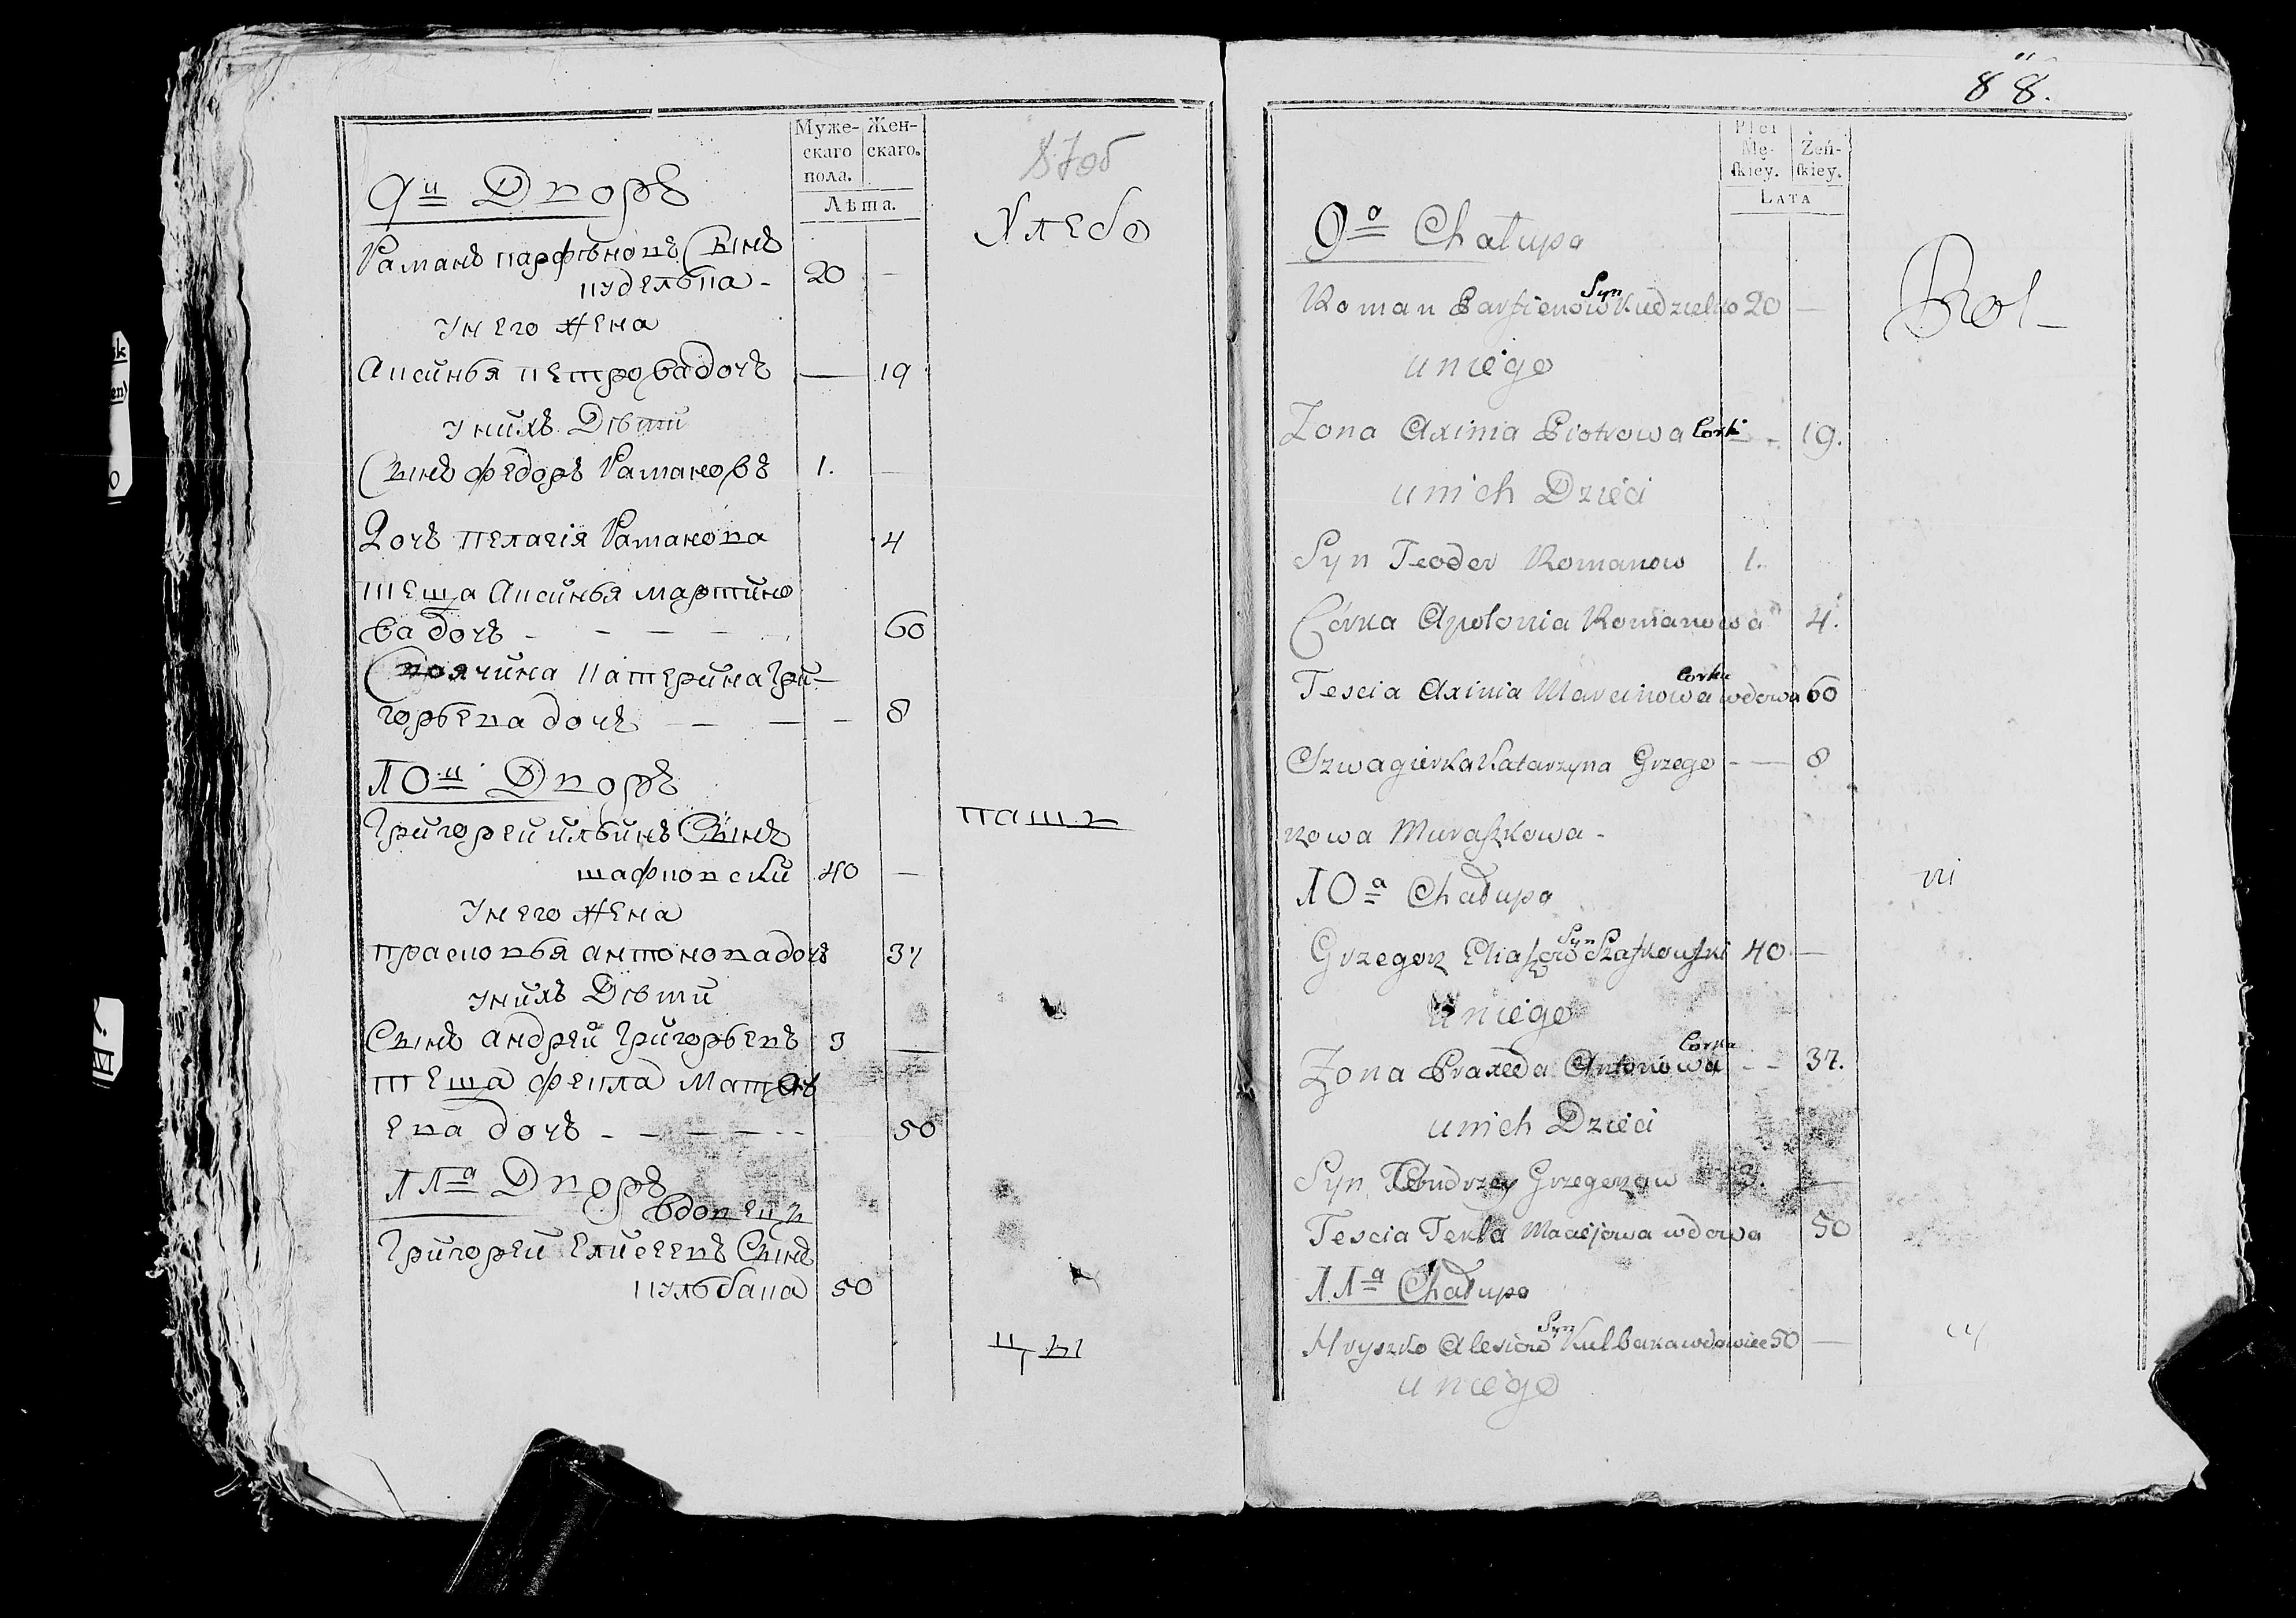 Муже-
скаго
пола.
Жен-
скаго.
Лѣта.
87об
Хлебо
9й Дворъ
Раманъ парфѣновъ Сынъ
куделька - 20 —
унего жена
Аксинья петровадочъ — 19
унихъ Дѣти
Сынъ федоръ Рамановъ 1. —
Дочъ пелагія Раманова 4
теща Аксинья мартино
ва дочъ - - - - 60
Своячина Катерина Гри-
горьева дочъ — — — 8
10й Дворъ
Григорей ильинъ Сынъ
пашъ
шафковски 40 —
Унего жена
прасковья антоновадочъ 37
унихъ Дѣти
Сынъ андрей Григорьевъ 3 —
теща фекла Матвѣ
ева дочъ - - - - - 50
11а Дворъ
вдовецъ
Григорей Елисеевъ Сынъ
кульбака 50
цы
88.
Płci
Mę-
skiey.
Żeń-
skiey.
LATA
9a Chałupa
Rol-
Syn
Roman Parfienow Kudzielko 20 —
uniego
Zona Axinia Piotrowa Corka - 19.
unich Dzieci
Syn Teodor Romanow 1.
Córka Apolonia Romanowa 4.
Corka
Tescia Axinia Marcinowa wdowa 60
Szwagierka Katarzyna Grzego - — 8
rzowa Muraszkowa -
10a Chałupa
ni
Syn
Grzegorz Eliaszow Szafkowski 40 —
uniego
Corka
Zona Praxeda Antonowa - - 37.
unich Dzieci
Syn Andrzey Grzegorzow 3. —
Tescia Tekla Maciejowa wdowa 50
11a Chałupa
Syn
Hryszko Alexiow Kulbaka wdowiec 50 —
cy
uniego